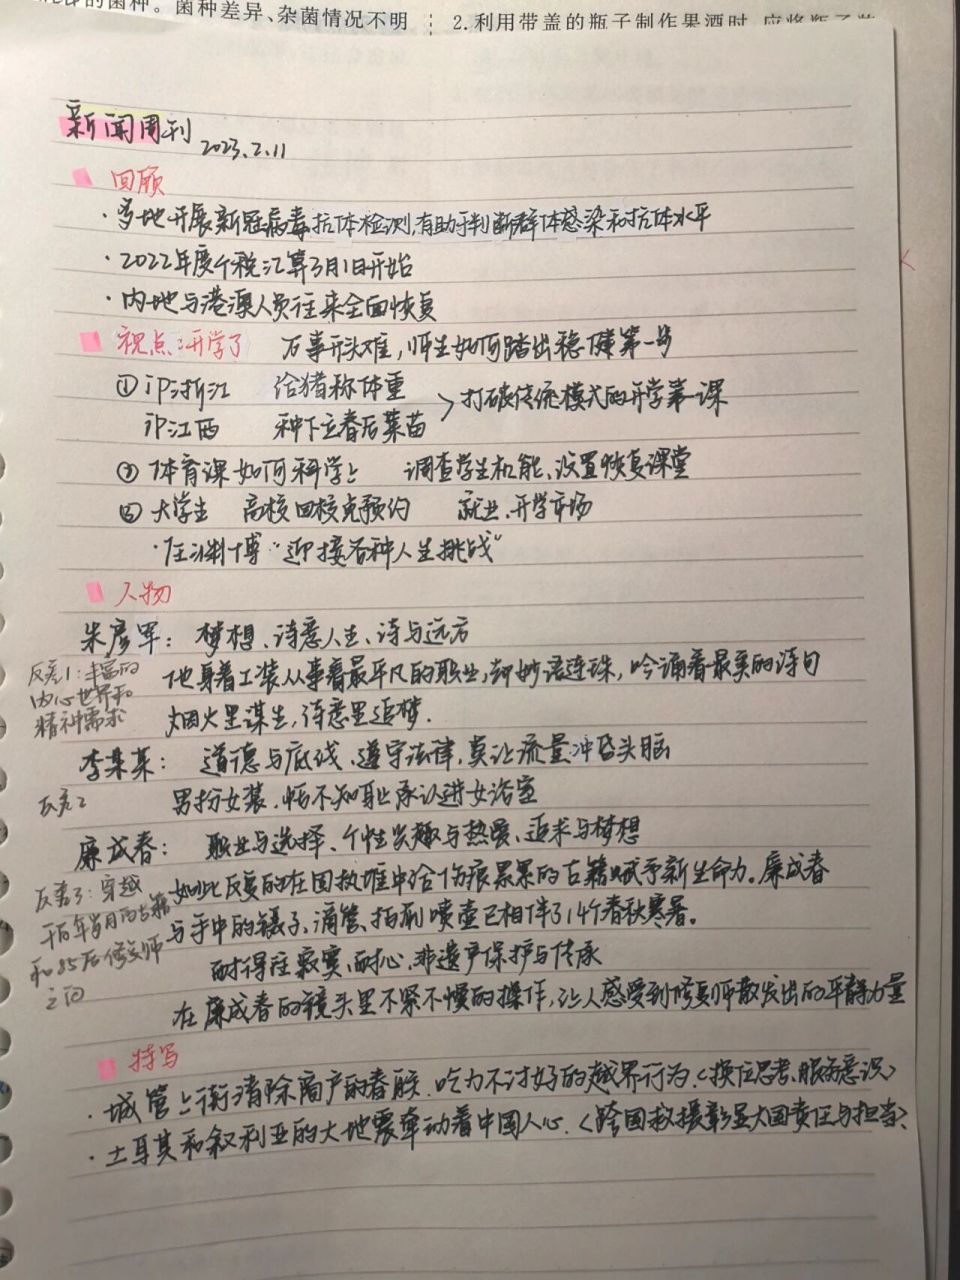 的菌种。菌种差异、杂菌情况不明
2.利用带盖的瓶子制作果酒时,应将瓶子
新闻周刊 2023.2.11
回顾
·多地开展新冠病毒抗体检测,有助于判断群体感染和抗体水平
·2022年度个税汇算3月1日开始
·内地与港澳人员往来全面恢复
视点:开学了 万事开头难,师生如何踏出稳健第一步
① IP浙江 给猪称体重
IP江西 种下立春后菜苗 > 打破传统模式的开学第一课
② 体育课如何科学上 调查学生机能、设置恢复课堂
④ 大学生 高校回校免预约 就业、开学市场
·汪渊博“迎接各种人生挑战”
人物
朱彦军:梦想、诗意人生、诗与远方
反差1:丰富的
内心世界和
精神需求
他身着工装从事着最平凡的职业,却妙语连珠,吟诵着最美的诗句
烟火里谋生,诗意里追梦.
李某某:道德与底线、遵守法律,莫让流量冲昏头脑
反差2
男扮女装,恬不知耻承认进女浴室
廉成春:职业与选择、个性兴趣与热爱、追求与梦想
反差3:穿越
千百年岁月的古籍
和85后修复师
之间
如此反复的在国故堆中给伤痕累累的古籍赋予新生命力。廉成春
与手中的镊子、滴管、拍刷喷壶已相伴了14个春秋寒暑。
耐得住寂寞、耐心、非遗产保护与传承
在廉成春的镜头里不紧不慢的操作,让人感受到修复师散发出的平静力量
特写
·城管上街清除商户的春联.吃力不讨好的越界行为.<换位思考、服务意识>
·土耳其和叙利亚的大地震牵动着中国人心.<跨国救援彰显大国责任与担当>